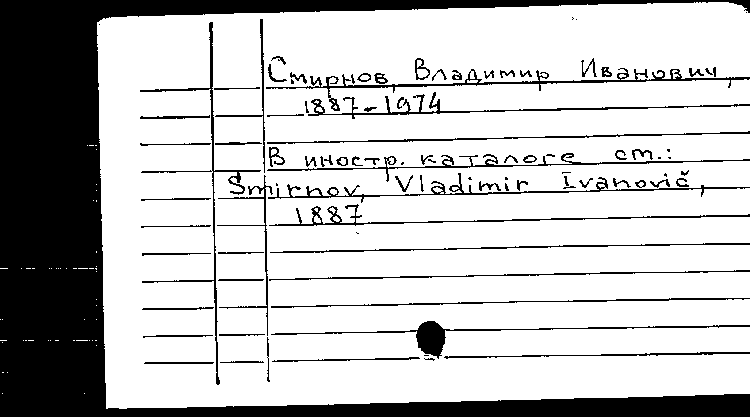 Смирнов, Владимир Иванович,
1887-1974
В иностр. каталоге см.:
Smirnov, Vladimir Ivanovič,
1887